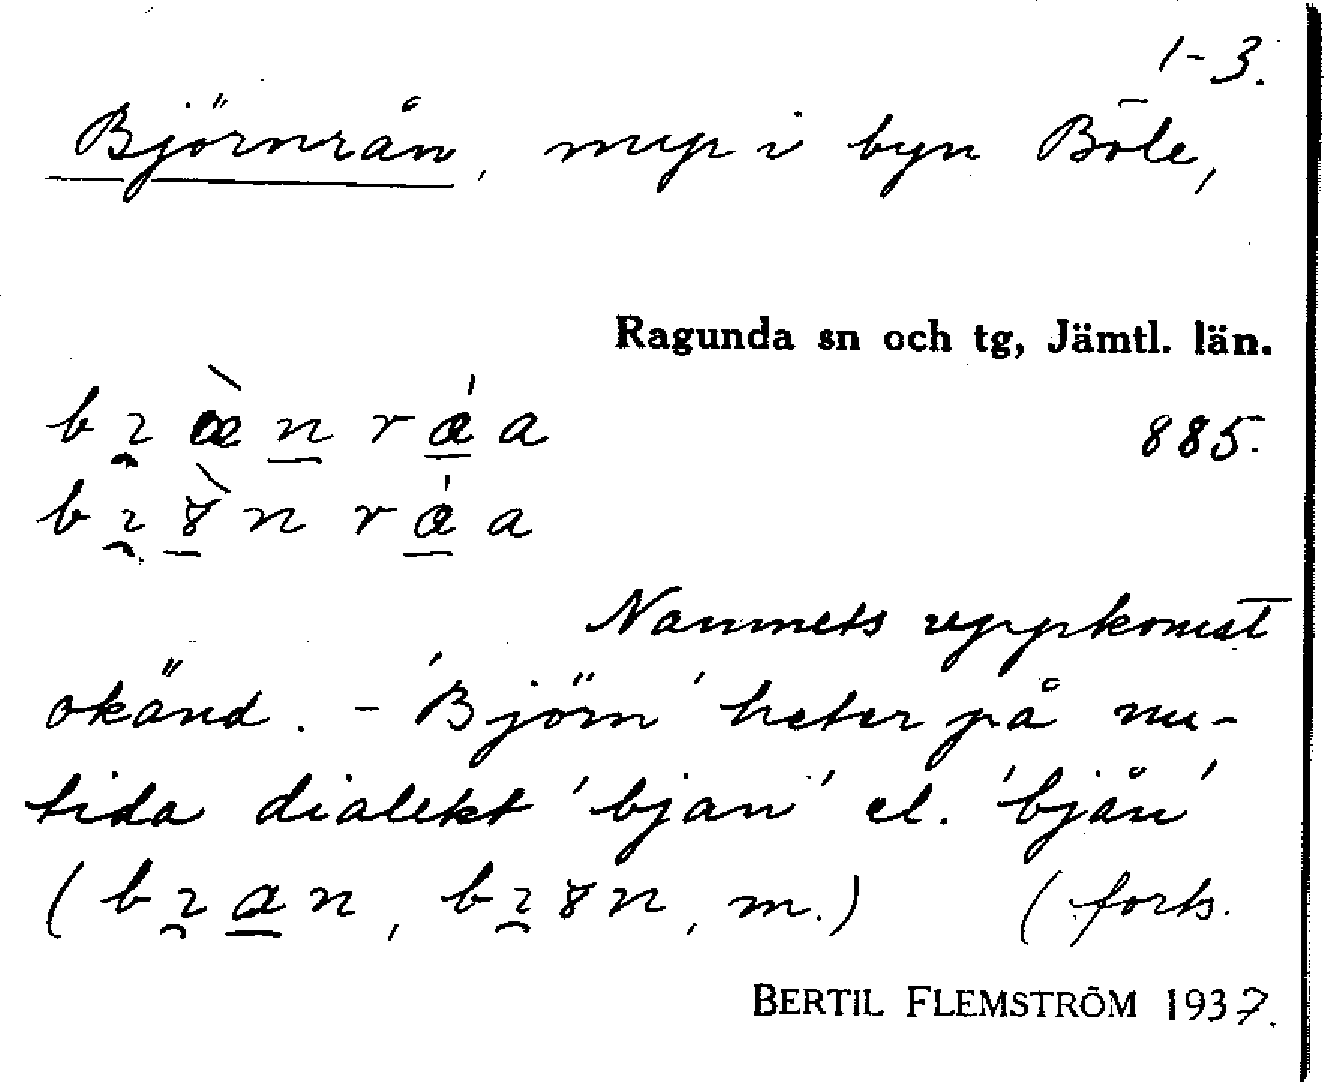 1-3.
Björnrån, myr i byn Böle,
Ragunda sn och tg, Jämtl. län.
885.
Namnets uppkomst
okänd. - 'Björn' heter på nu-
tida dialekt 'bjan' el. 'bjån'
m.) (forts.
BERTIL FLEMSTRÖM 1937.